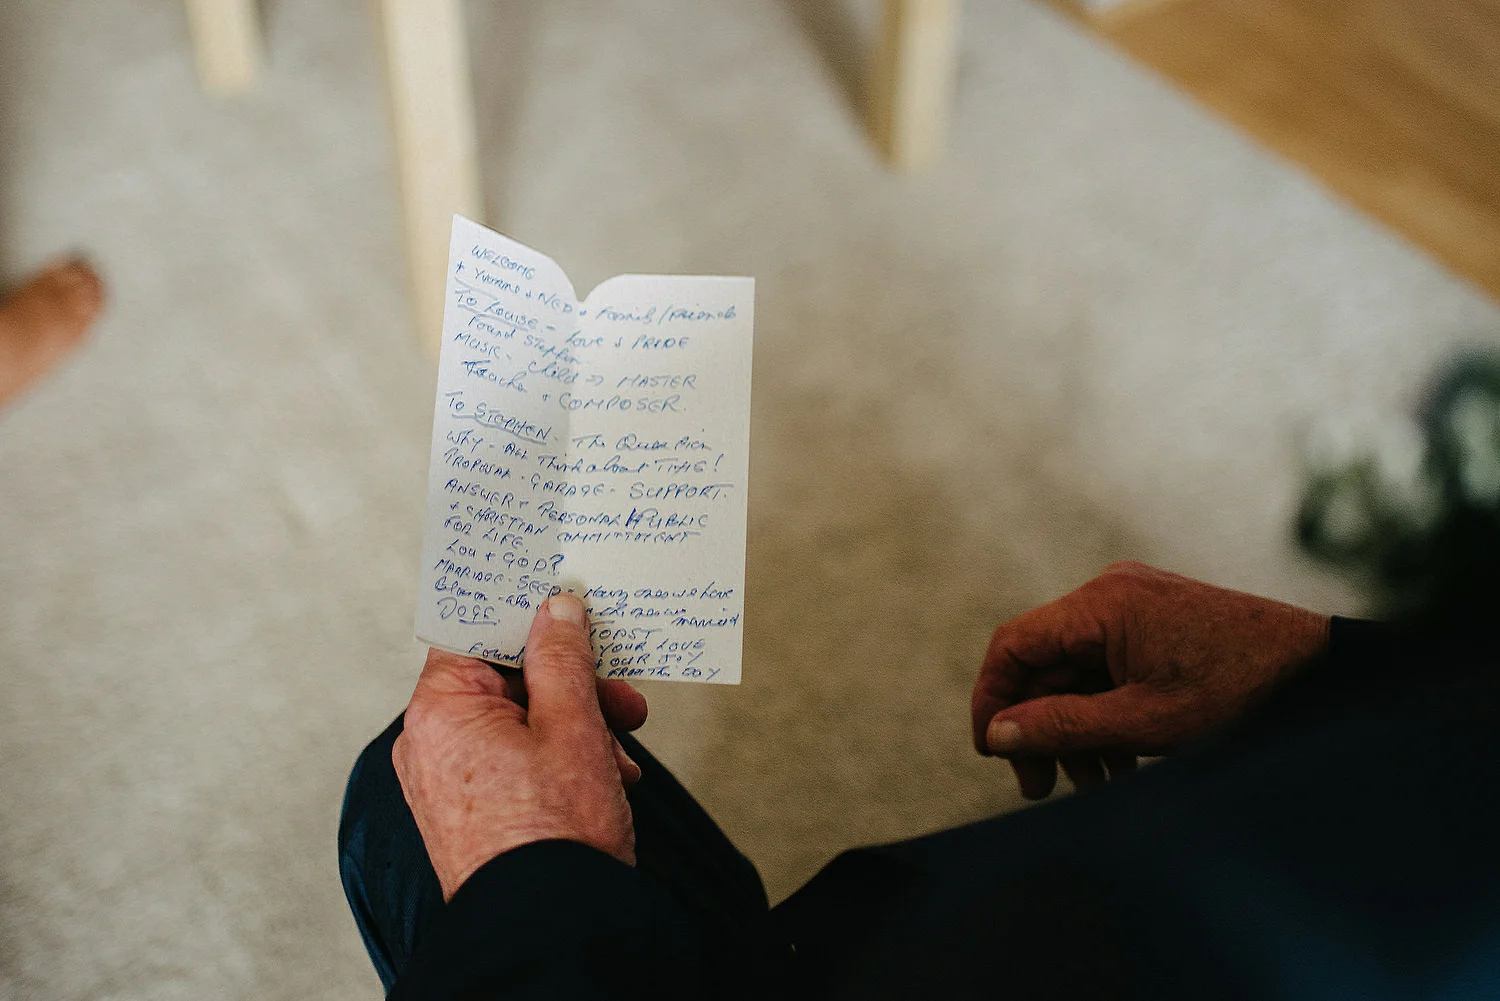 WELCOME
+ Yvonne + NED + Family/Friends
To Louise. - Love & PRIDE
Found Stephen.
MUSIC - Child => MASTER
Teacher + COMPOSER.
To STEPHEN - The Question
Why - ALL Think about THIS!
PROPOSAL - GARAGE - SUPPORT.
ANSWER + PERSONAL/PUBLIC
+ CHRISTIAN COMMITTMENT
FOR LIFE.
LOU + GOD?
MARRIAGE - SEED - Many ones we have
the ones we married
DOGE.
TOAST
YOUR LOVE
& OUR JOY
FROM This DAY